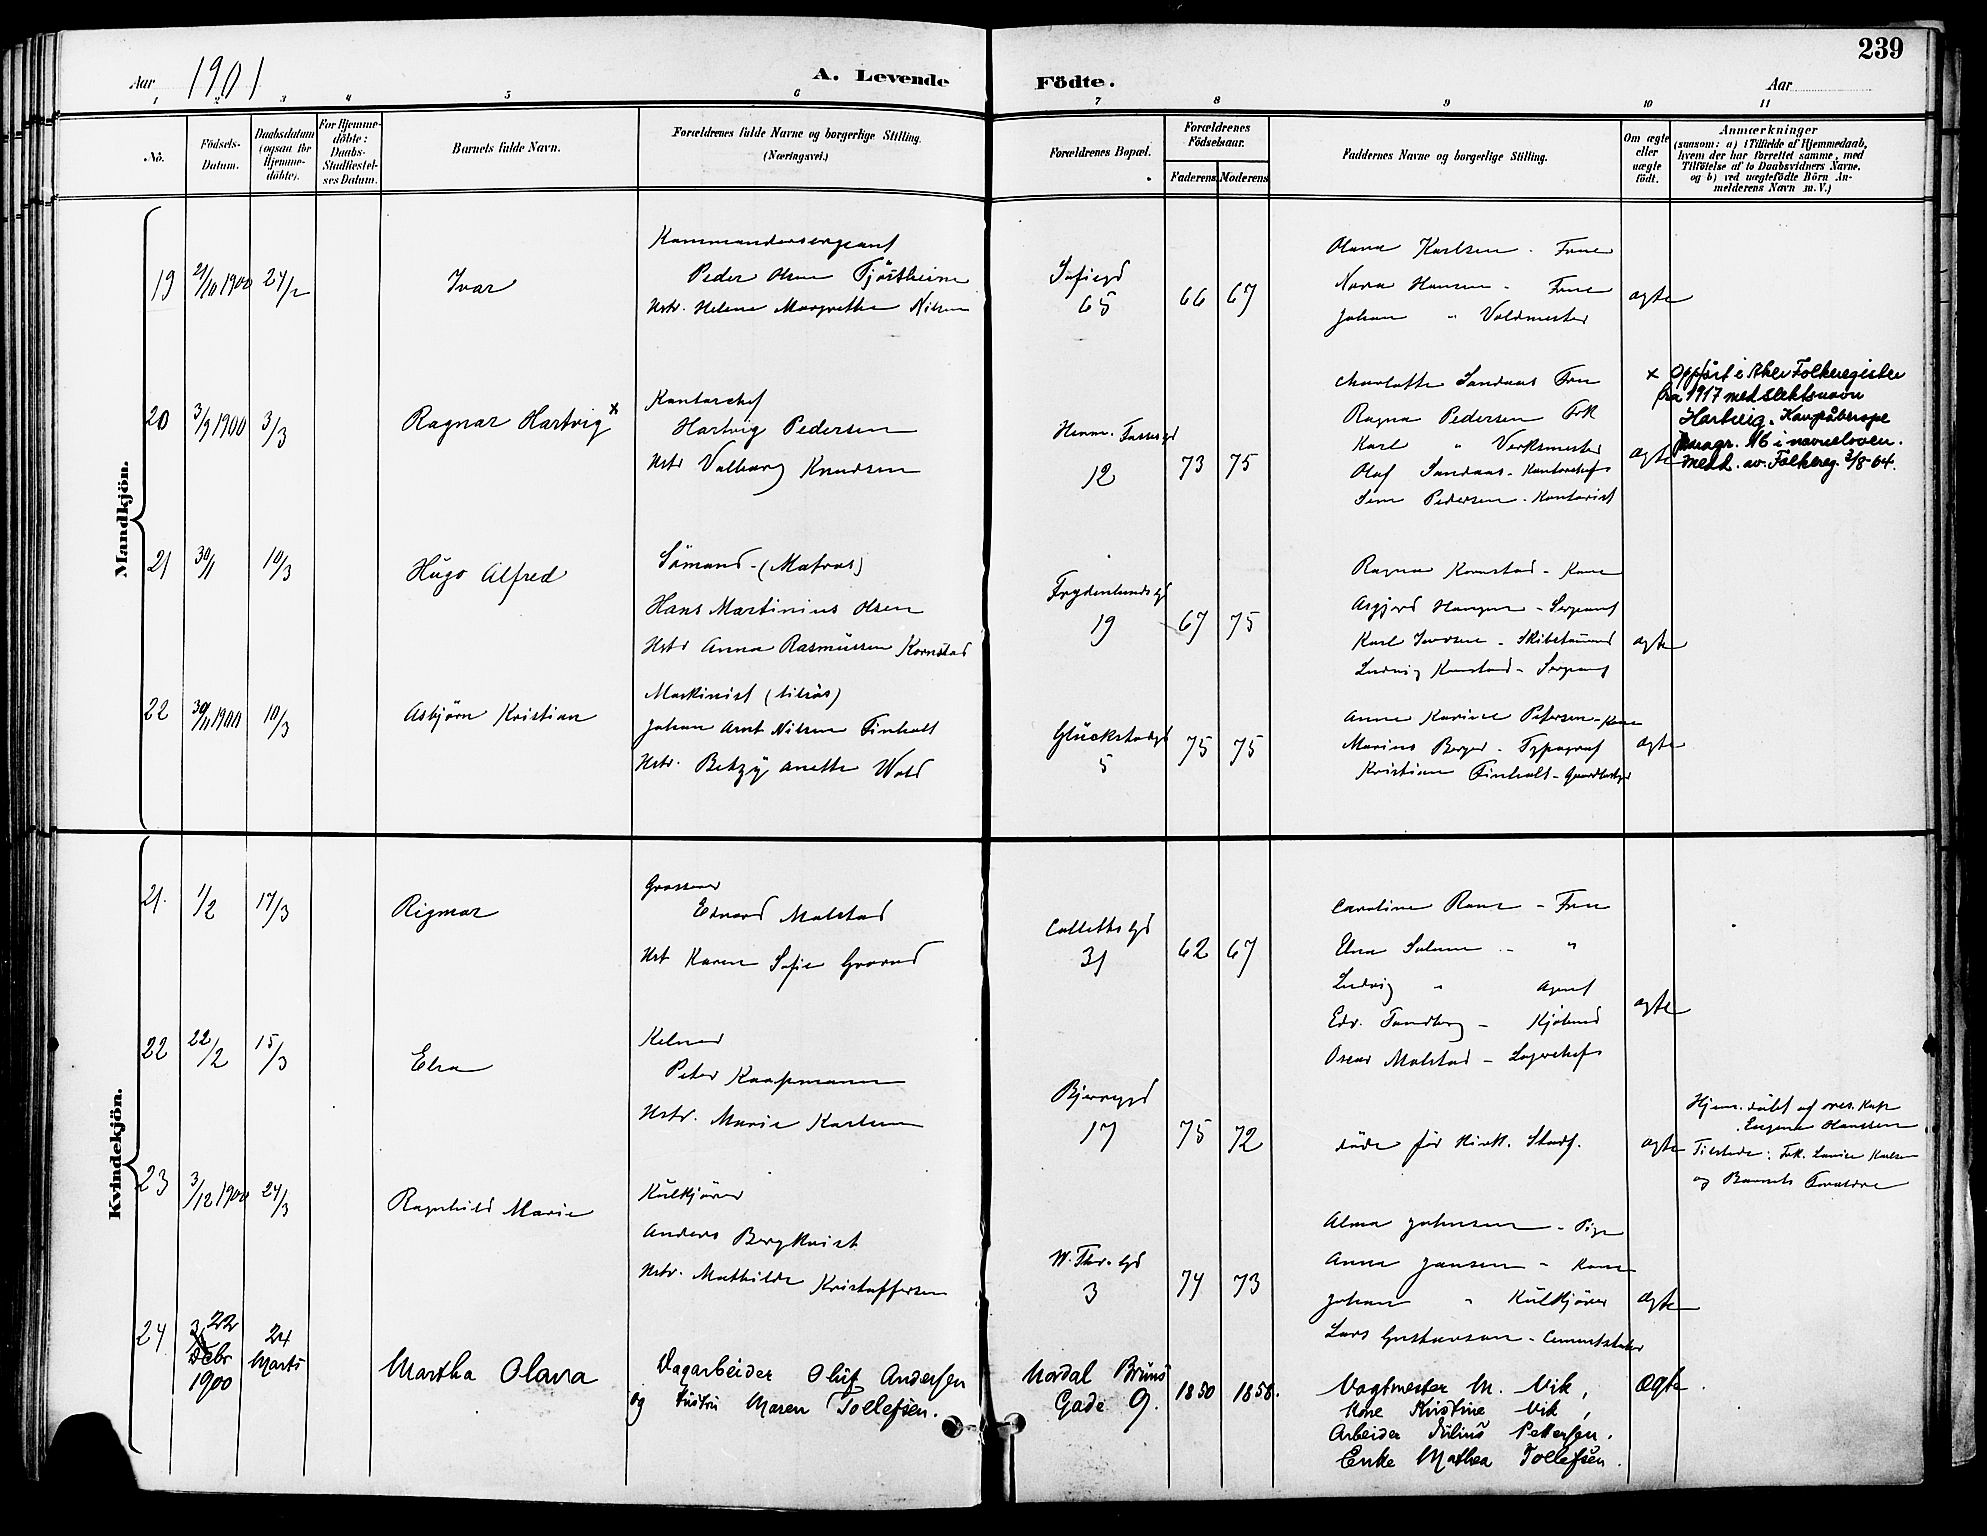 239
Aar 1901
A. Levende Födte.
Aar
1 2 3 4 5 6 7 8 9 10 11
No.
Födsels-Datum.
Daabsdatum (ogsaa for Hjemme-döbte).
For Hjemme-döbte: Daabs-Stadfæstel-ses Datum.
Barnets fulde Navn.
Forældrenes fulde Navne og borgerlige Stilling.
(Næringsvei.)
Forældrenes Bopæl.
Forældrenes Födselsaar.
Faderens Moderens
Faddernes Navne og borgerlige Stilling.
Om ægte eller uægte födt.
Anmærkninger
(saasom: a) i Tilfælde af Hjemmedaab,
hvem der har forrettet samme, med
Tilföielse af to Daabsvidners Navne,
og b) ved uægtefödte Börn An-
melderens Navn m. V.)
Mandkjön.
19 21/11 1900 24/2
Ivar
Kommandersergeant
Peder Olsen Tjöstheim
Hstr. Helene Margrethe Nilsen
Sofiegd
65
66 67
Olava Karlsen - Frue
Nora Hansen - Frue
Johan " Voldmester
ægte
20 3/9 1900 3/3
Ragnar Hartvig x
Kontorchef
Hartvig Pedersen
Hstr Valborg Knudsen
12
73 75
Charlotte Sandaas Frue
Ragna Pedersen Frk
Karl " Verksmester
Olaf Sandaas - Kontorchef
Pedersen - Kontorist
ægte
x Oppført i Aker Folkeregister
fra 1917 med slektsnavn
Hartvig. Kan påberope
paragr. 16 i navneloven.
Medd. av Folkereg. 3/8-64.
21 30/1 10/3
Hugo Alfred
Sömand - (Matros)
Hans Martinius Olsen
Hstr Anna Rasmussen Kornstad
Frydenlundsgd
19
67 75
Ragna Kornstad - Kone
Hansen - Sergeant
Karl Iversen - Skibstömmd
Ludvig Kornstad - Sergeant
ægte
22 30/11 1900 10/3
Asbjörn Kristian
Maskinist (tilsøs)
Johan Arnt Nilsen Finholt
Hstr. Betzy Anette Wold
Glückstadgd
5
75 75
Anne Karine Petersen - Kone
Marius Berger - Typograf
Kristian Finholt -
ægte
Kvindekjön.
21. 1/2 17/3
Rigmor
Grosserer
Edvard Malstad
Hst Karen Sofie
Collettsgd
31
62 67
Caroline - Frue
Elna Solem - "
Ludvig " Agent
Edv. Tandberg - Kjøbmd
Oscar Malstad - Lagerchef
ægte
22 22/2 15/3
Elsa
Kelner
Peter Kaapmann
Hstr. Marie Karlsen
Bjerregd
17
75 72
döde för Kirk. Stadf.
ægte
Hjem. döbt af res. Kap
Eugene Hanssen
Tilstede: Frk. Karlsen
og Barnets Forældre
23 3/12 1900 24/3
Ragnhild Marie
Kulkjörer
Anders Bergkvist
Hstr. Mathilde Kristoffersen
W. Thr. Gd
3
74 73
Alma Johnsen - Pige
Anna Jansen - Kone
Johan " Kulkjörer
Lars Gustavson - Cementstöber
ægte
24 22 Debr 1900
24 Marts
Martha Olava
Dagarbeider Oluf Andersen
og Hustru Maren Tollefsen.
Nordal Bruns
Gade 9.
1850 1858.
Vagtmester M. Vik,
Kone Kristine Vik,
Arbeider Julius Pettersen.
Enke Mathea Tollefsen.
Ægte.